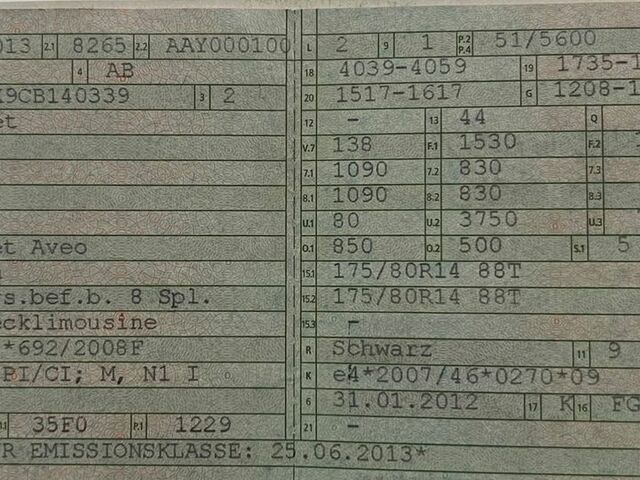 013 2.1 8265 2.2 AAY000100 L 2 9 1 P.2 P.4 51/5600
4 AB 18 4039-4059 19 1735-1
K9CB140339 3 2 20 1517-1617 G 1208-1
et 12 - 13 44 Q
V.7 138 F.1 1530 F.2
7.1 1090 7.2 830 7.3
8.1 1090 8.2 830 8.3
U.1 80 U.2 3750 U.3
et Aveo O.1 850 O.2 500 S.1 5
15.1 175/80R14 88T
rs.bef.b. 8 Spl. 15.2 175/80R14 88T
ecklimousine 15.3 -
*692/2008F R Schwarz 11 9
PI/CI; M, N1 I K e4*2007/46*0270*09
6 31.01.2012 17 K 16 FG
.1 35F0 P.1 1229 21 -
R EMISSIONSKLASSE: 25.06.2013*